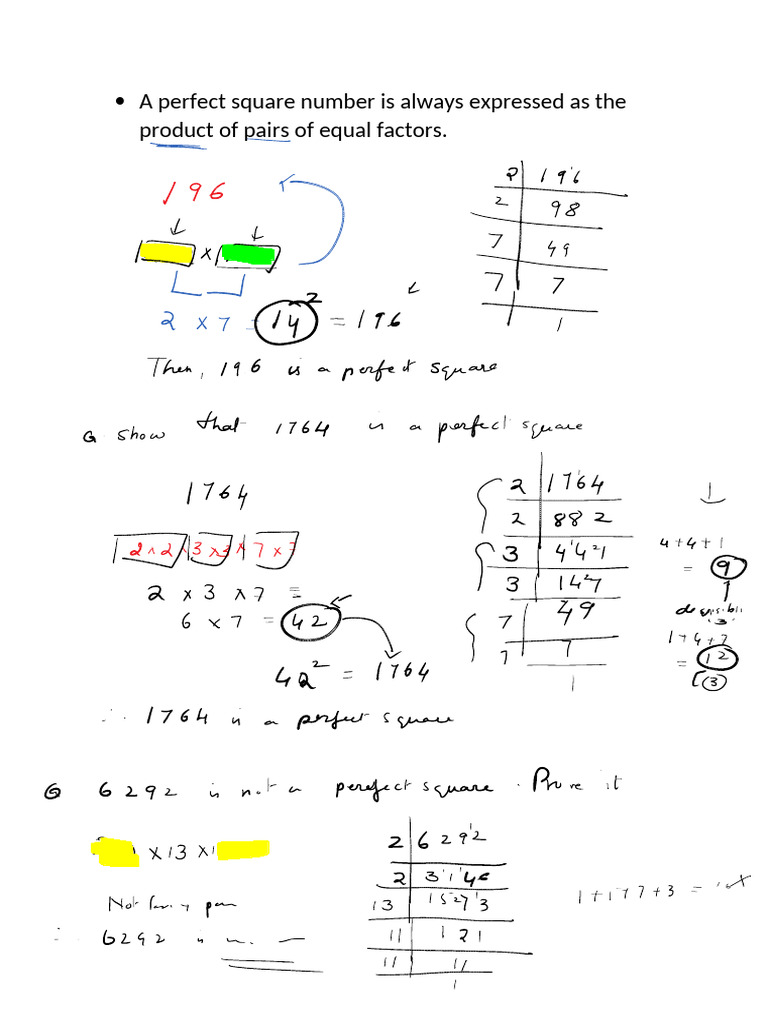 • A perfect square number is always expressed as the
product of pairs of equal factors.
196
×
2 × 7 = 14² = 196
2 | 196
2 | 98
7 | 49
7 | 7
| 1
Then, 196 is a perfect square
Q show that 1764 is a perfect square
1764
2×2 × 3×3 × 7×7
2 × 3 × 7 =
6 × 7 = 42
42² = 1764
2 | 1764
2 | 882
3 | 441
3 | 147
7 | 49
7 | 7
1
4+4+1
= 9
3
1+4+7
= 12
3
∴ 1764 is a perfect square
Q 6292 is not a perefect square. Prove it
× 13 ×
Not
∴ 6292 is
2 | 6292
2 | 3146
13 | 1573
11 | 121
11 | 11
1
1+1+7+3 =